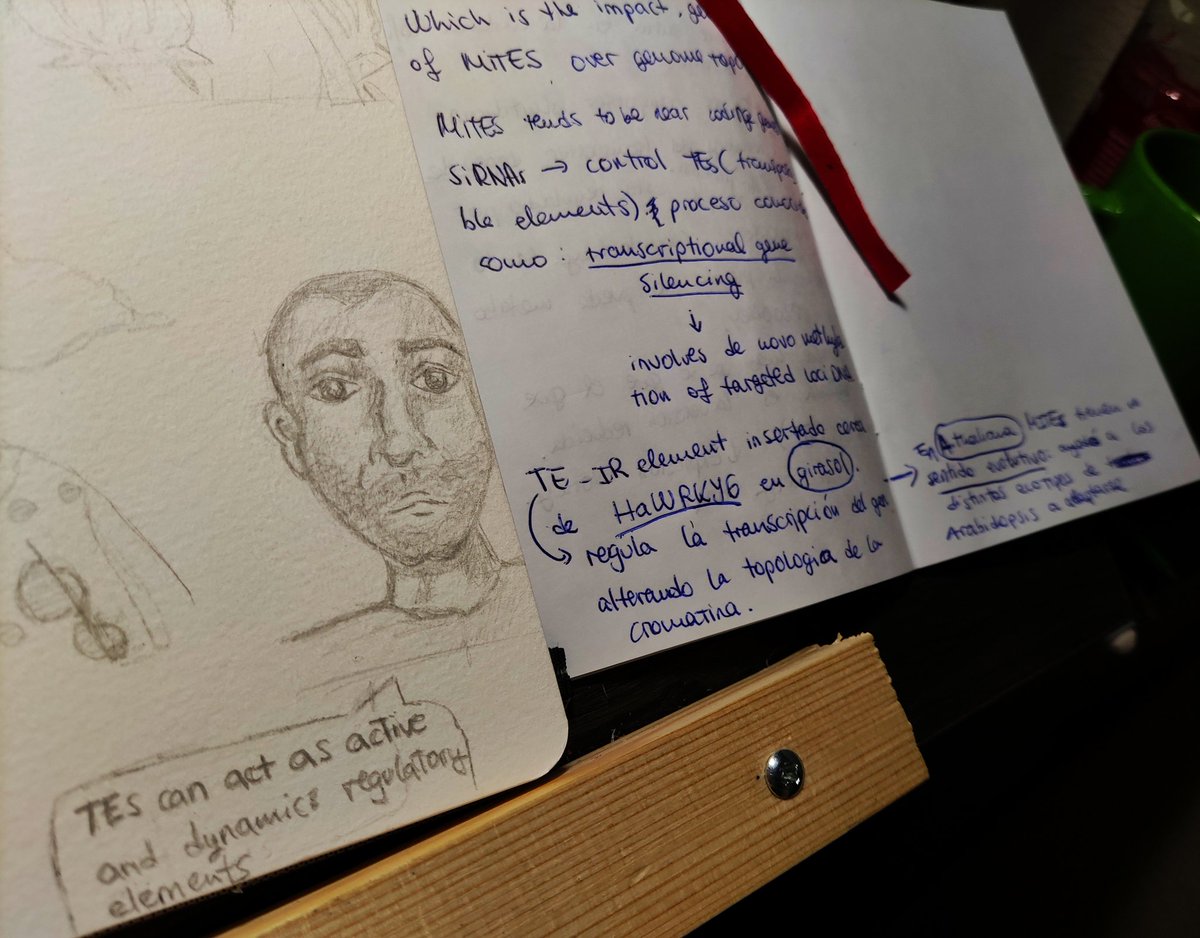 Which is the impact,
of MITES over genome
MITES tends to be near coding
SiRNAs → control TEs (
ble elements) proceso
como: transcriptional gene
silencing
↓
involves de novo
tion of targeted loci DNA
TE-IR element insertado cerca
de HaWRKY6 en girasol.
regula la transcripción del gen
alterando la topologica de la
cromatina.
→ En A thaliana MITES tienen un
sentido evolutivo. a las
distintos ecotypes de
Arabidopsis a
TEs can act as active
and dynamics regulatory
elements